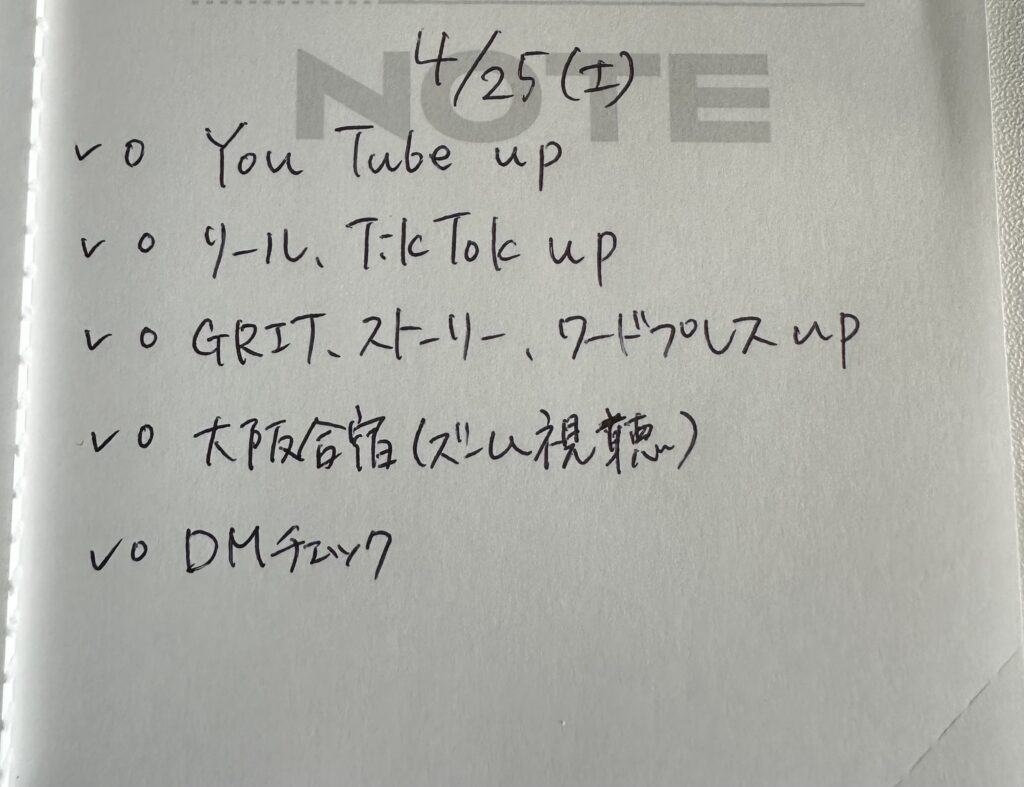 NOTE
4/25(土)
✓ ○ YouTube up
✓ ○ リール、TikTok up
✓ ○ GRIT、ストーリー、ワードプレス up
✓ ○ 大阪合宿(ズーム視聴)
✓ ○ DMチェック